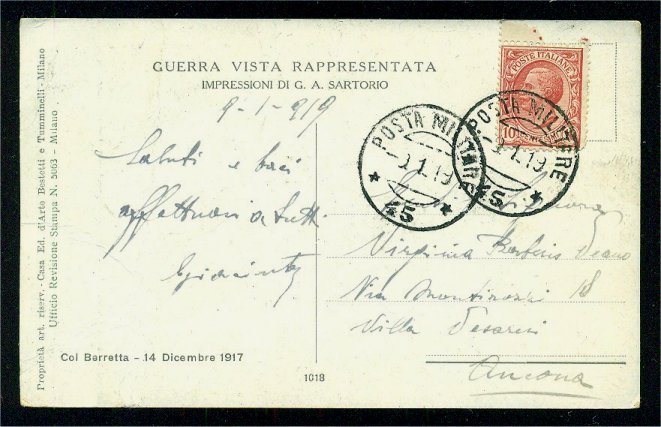 GUERRA VISTA RAPPRESENTATA
IMPRESSIONI DI G. A. SARTORIO
9-1-919
Saluti e baci
affettuosi a tutti
Giacinto
Col Berretta - 14 Dicembre 1917
1018
Proprietà art. riserv. - Casa Ed. d'Arte Bestetti e Tumminelli - Milano
Ufficio Revisione Stampa N. 5063 - Milano
POSTE ITALIANE
10
POSTA MILITARE
9.1.19
45
POSTA MILITARE
9.1.19
45
Signora
Virginia
Via 18
Villa
Ancona